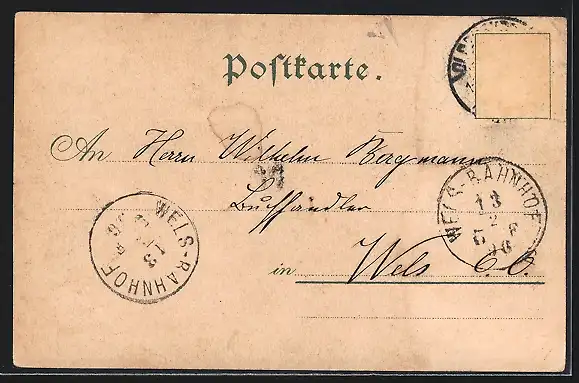 Postkarte.
An Herrn Wilhelm Bergmann
Buchhandler
in Wels O.Ö.
WELS-BAHNHOF
13
2
96
WELS-BAHNHOF
13
2
5
96